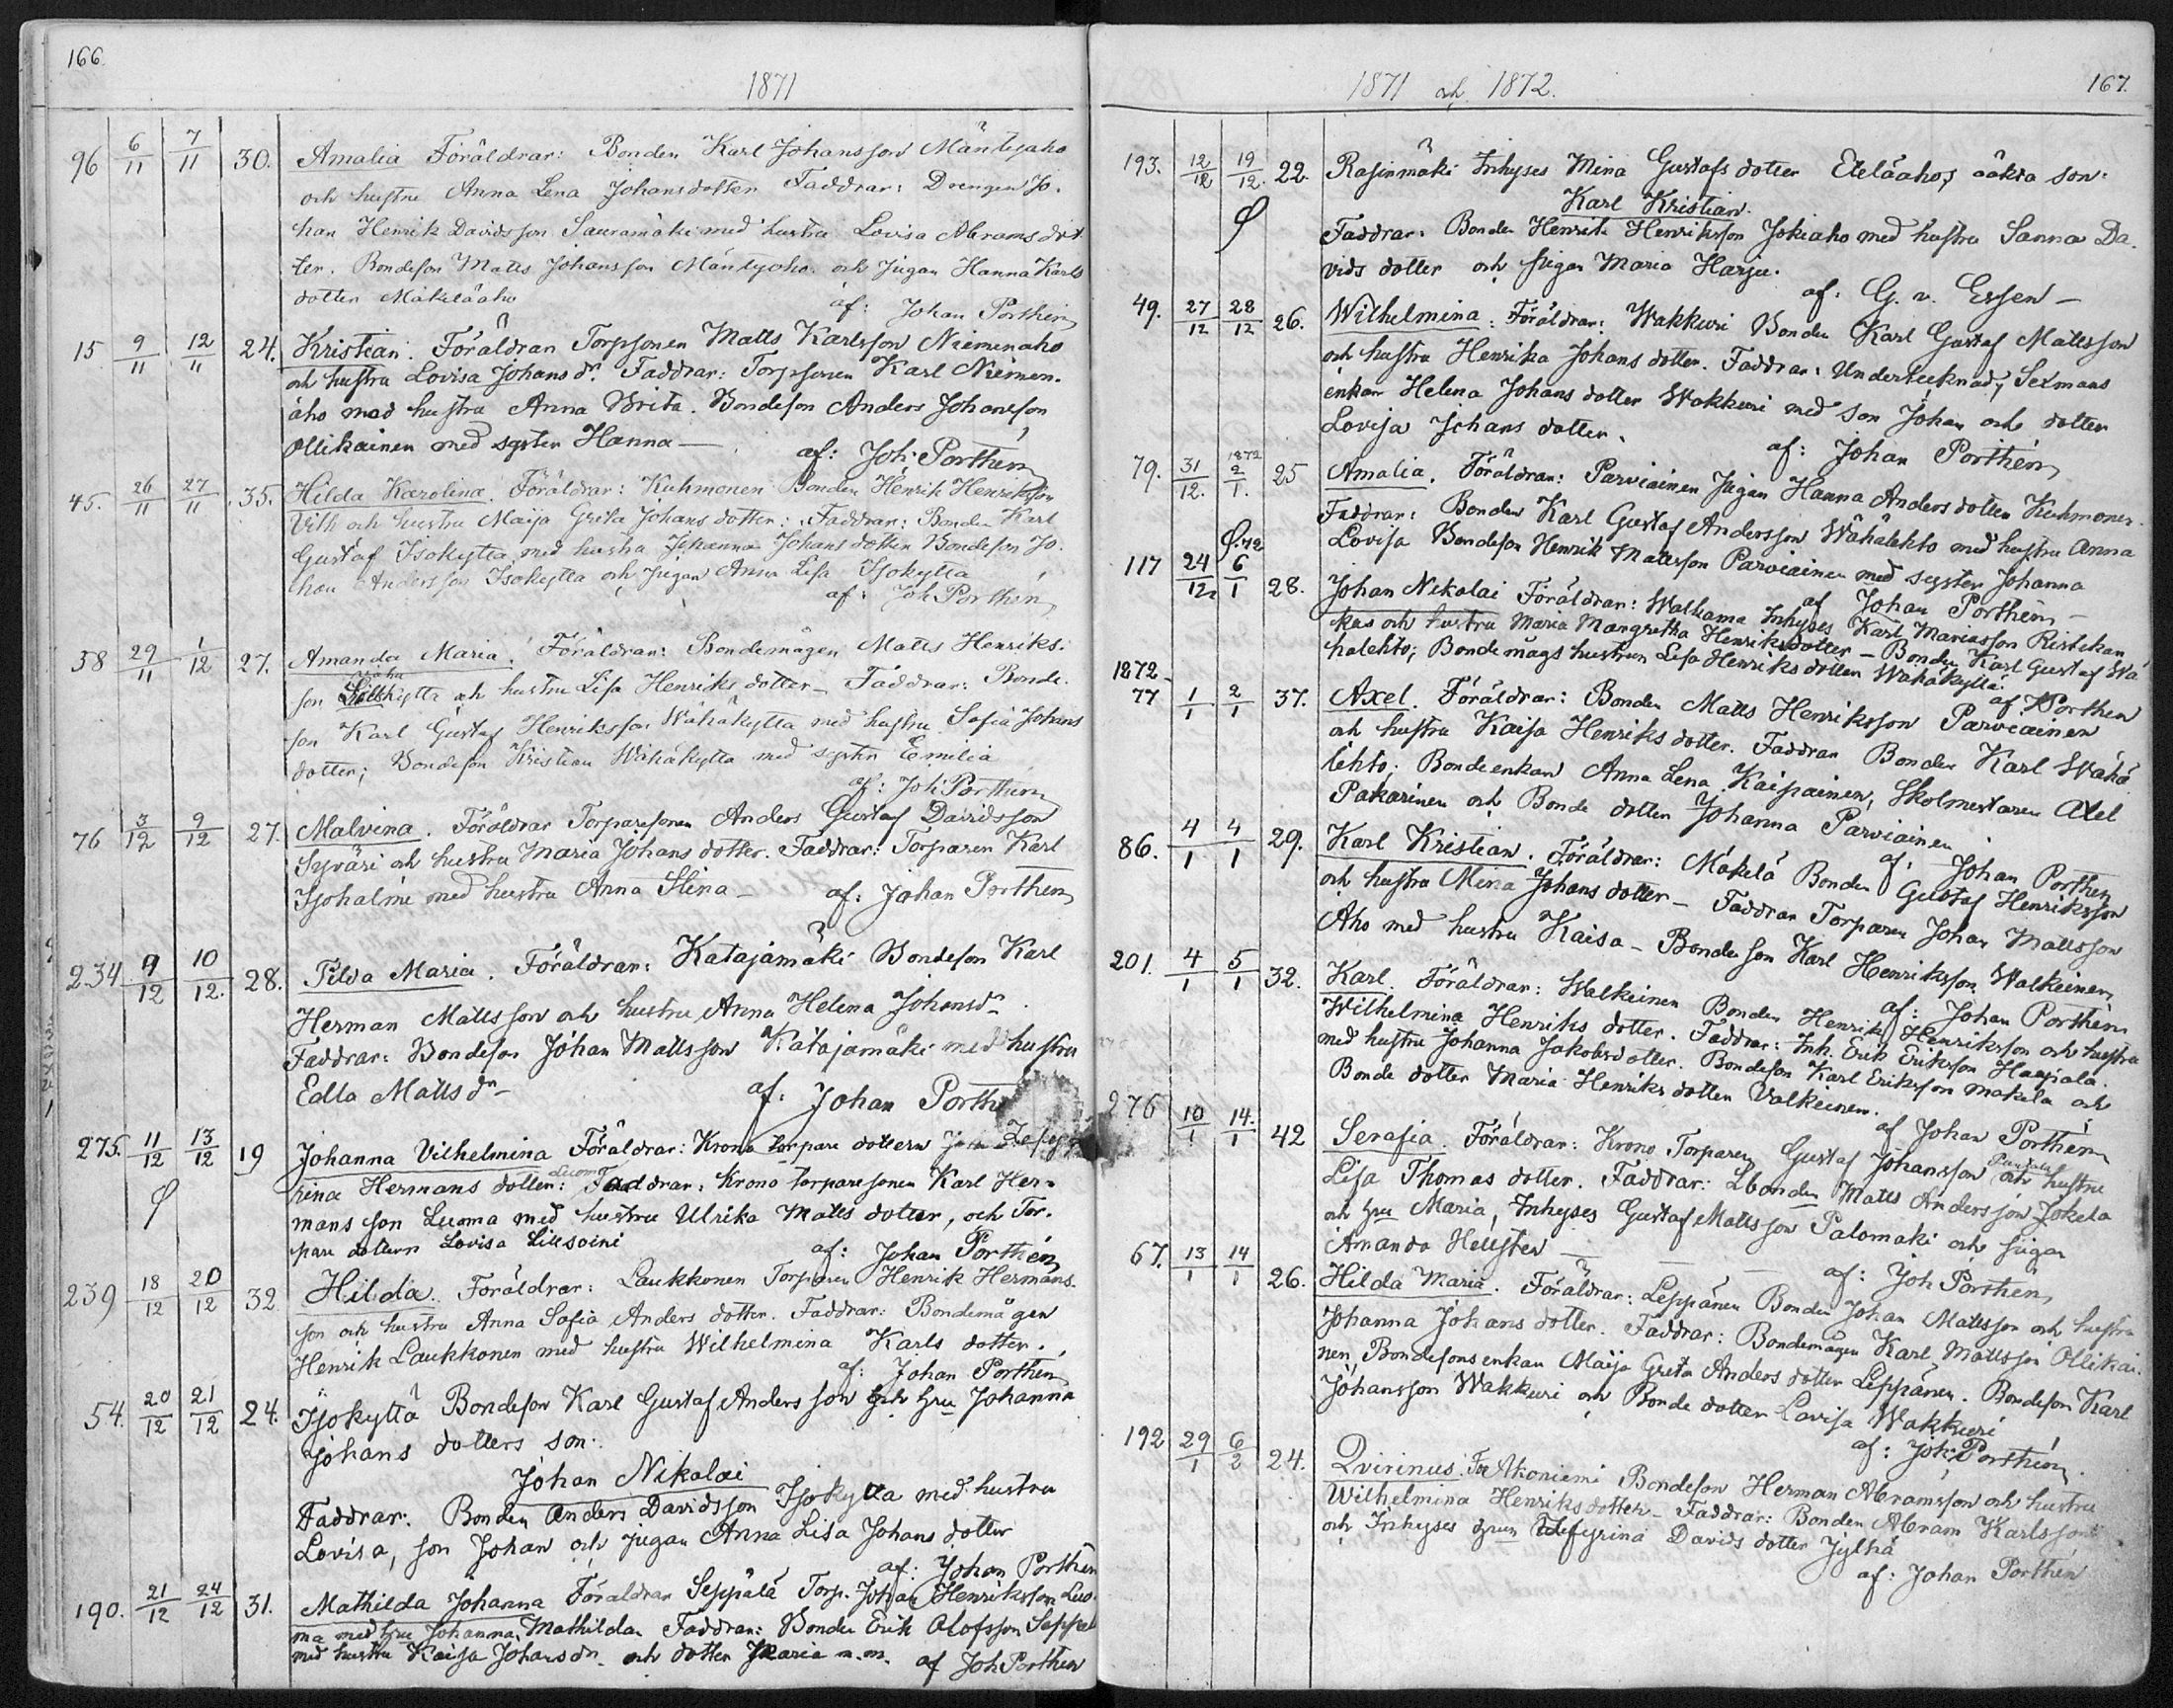 166.
1871
96 6/11 7/11 30. Amalia Föräldrar: Bonden Karl Johansson Mäntyaho
och hustru Anna Lena Johansdotter Faddrar: Drengen Jo-
han Henrik Davidsson Sauramäki med hustru Lovisa Abramsdot
ter. Bondeson Matts Johansson Mäntyaho och pigan Hanna Karls
dotter Mäkeläaho
af: Johan Porthén
15 9/11 12/11 24. Kristian. Föräldrar Torpsonen Matts Karlsson Niemenaho
och hustru Lovisa Johans dr. Faddrar: Torpsonen Karl Niemen-
aho med hustru Anna Brita. Bondeson Anders Johansson
Ollikainen med syster Hanna —
af: Joh Porthén
45. 26/11 27/11 35. Hilda Karolina. Föräldrar: Kuhmonen Bonden Henrik Henriksson
och hustru Maija Greta Johans dotter: Faddrar: Bonden Karl
Gustaf Isokyttä med hustru Johanna Johans dotter Bondeson Jo-
han Andersson Isokyttä och pigan Anna Lisa Isokyttä
af: Joh Porthén
58 29/11 1/12 27. Amanda Maria. Föräldrar: Bondemågen Matts Henriks-
son kyttä och hustru Lisa Henriks dotter – Faddrar: Bonde-
son Karl Gustaf Henriksson Wähäkyttä med hustru Sofia Johans
dotter; Bondeson Kristian Wähäkyttä med syster Emilia
af: Joh Porthén
76 3/12 9/12 27. Malvina. Föräldrar Torparesonen Anders Gustaf Davidsson
Syväri och hustru Maria Johans dotter. Faddrar: Torparen Karl
Isohalme med hustru Anna Stina – af: Johan Porthén
234 9/12 10/12. 28. Tilda Maria. Föräldrar: Katajamäki Bondeson Karl
Herman Matts son och hustru Anna Helena Johansdr.
Faddrar: Bondeson Johan Mattsson Katajamäki med hustru
Edla Matts dr –
af: Johan Porth
275. 11/12 13/12 19 Johanna Vilhelmina Föräldrar: Krono torpare dottern
rina Hermans dotter: Luoma Faddrar: Krono torparesonen Karl Her-
mans son Luoma med hustru Ulrika Matts dotter, och Tor-
pare dottern Lovisa
af: Johan Porthén
239 18/12 20/12 32 Hilda. Föräldrar: Laukkonen Torparen Henrik Hermans-
son och hustru Anna Sofia Anders dotter. Faddrar: Bondemågen
Henrik Laukkonen med hustru Wilhelmina Karls dotter.
af: Johan Porthén
54. 20/12 21/12 24. Isokyttä Bondeson Karl Gustaf Anders son och hru Johanna
Johans dotters son:
Johan Nikolai
Faddrar: Bonden Anders Davidsson Isokyttä med hustru
Lovisa, son Johan och pigan Anna Lisa Johans dotter
af: Johan Porthén
190. 21/12 24/12 31. Mathilda Johanna Föräldrar Seppälä Torp. Johan Henriksson Luo-
ma med hru Johanna Mathilda. Faddrar: Bonden Erik Olofsson Seppä
med hustru Kaisa Johansdr. och dotter Maria m.m. af Joh Porthén
1871 och 1872.
167.
193. 12/12 19/12. 22. Rasinmäki Inhyses Mina Gustafs dotter Eteläahos oäkta son:
Karl Kristian.
Faddrar: Bonden Henrik Henriksson Jokiaho med hustru Sanna Da-
vids dotter och pigan Maria Harju.
af: G. v. Essen –
49. 27/12 28/12 26. Wilhelmina: Föräldrar: Wakkuri Bonden Karl Gustaf Mattsson
och hustru Henrika Johans dotter. Faddrar: Undertecknad, Sexmans
enkan Helena Johans dotter Wakkuri med son Johan och dotter
Lovisa Johans dotter.
af: Johan Porthén
79. 31/12. 1872 2/1. 25 Amalia. Föräldrar: Parviainen pigan Hanna Anders dotter Kuhmonen.
Faddrar: Bonden Karl Gustaf Andersson Wähälehto med hustru Anna
Lovisa Bondeson Henrik Mattsson Parviainen med syster Johanna
af Johan Porthén –
117 24/12 72 6/1 28. Johan Nikolai Föräldrar: Walkama Inhyses Karl Mariasson Ristikan
kas och hustru Maria Margretha Henriksdotter – Bonden Karl Gustaf Wä
hälehto; Bondemågs hustrun Lisa Henriks dotter Wähäkyttä.
af Porthén
1872
77 1/1 2/1 37. Axel. Föräldrar: Bonden Matts Henriksson Parviainen
och hustru Kaisa Henriks dotter. Faddrar Bonden Karl Wähä
lehto; Bondeenkan Anna Lena Kaipainen, Skolmestaren Axel
Pakarinen och Bonde dotter Johanna Parviainen
af: Johan Porthén
86. 4/1 4/1 29. Karl Kristian. Föräldrar: Mäkelä Bonden Gustaf Henriksson
och hustru Mina Johans dotter – Faddrar Torparen Johan Mattsson
Aho med hustru Kaisa – Bonde son Karl Henriksson Walkeinen
af: Johan Porthén
201. 4/1 5/1 32. Karl. Föräldrar: Walkeinen Bonden Henrik Henriksson och hustru
Wilhelmina Henriks dotter. Faddrar: Inh. Erik Eriksson Haapala
med hustru Johanna Jakobsdotter. Bondeson Karl Eriksson Makela och
Bonde dotter Maria Henriks dotter Valkeinen.
af Johan Porthén
276 10/1 14./1 42 Serafia. Föräldrar: Krono Torparen Gustaf Johansson och hustru
Lisa Thomas dotter. Faddrar: Lbonden Matts Andersson Jokela
och hru Maria, Inhyses Gustaf Mattsson Palomaki och pigan
Amanda Hellsten –
af: Joh Porthén
67. 13/1 14/1 26. Hilda Maria. Föräldrar: Leppänen Bonden Johan Mattsson och hustru
Johanna Johans dotter. Faddrar: Bondemågen Karl Mattsson Ollikai-
nen, Bondesonsenkan Maija Greta Anders dotter Leppänen. Bondeson Karl
Johansson Wakkuri och Bonde dotter Lovisa Wakkuri
af: Joh. Porthén
192 29/1 6/2 24. Qvirinus. Akoniemi Bondeson Herman Abramsson och hustru
Wilhelmina Henriks dotter – Faddrar: Bonden Abram Karlsson
och Inhyses Davids dotter Jylhä
af: Johan Porthén